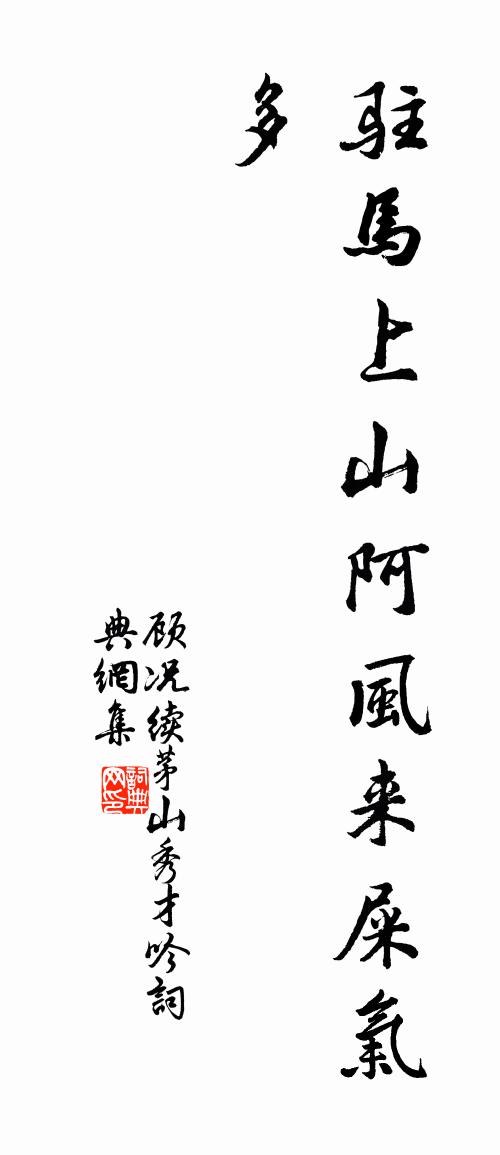 駐馬上山阿風来屎氣
多
顾况續茅山秀才吟詞
典網集
詞典
网印